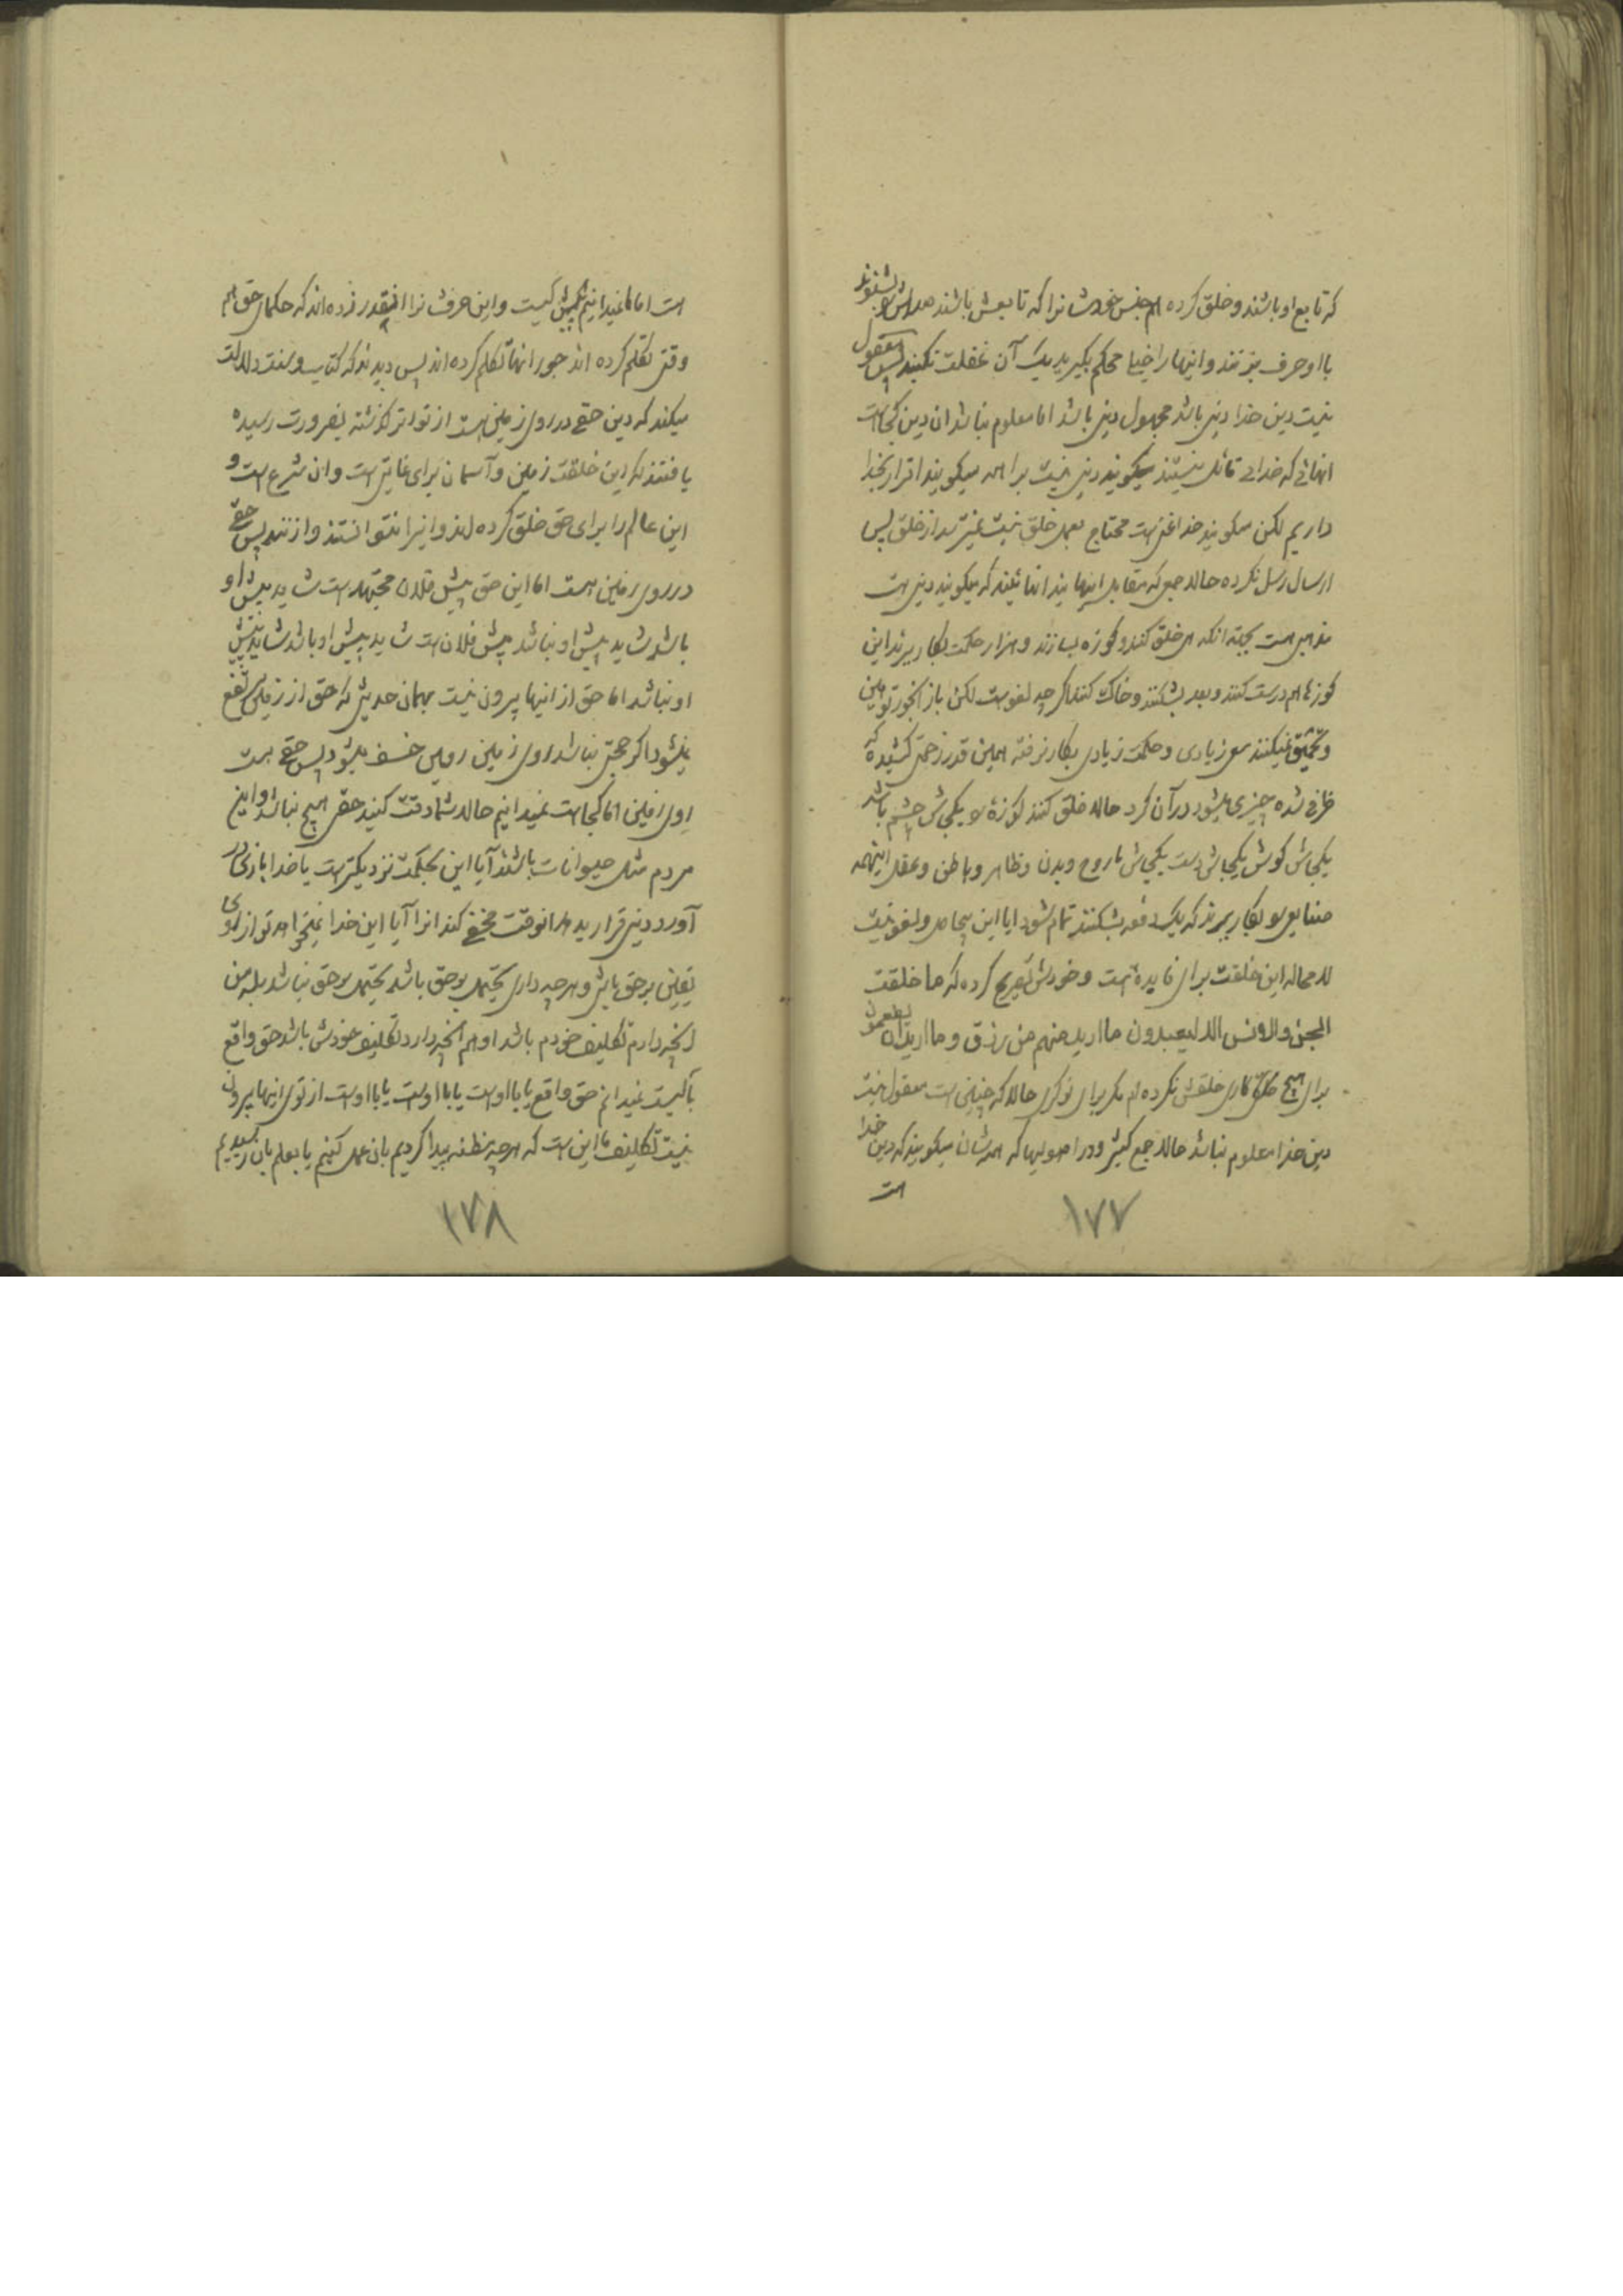 که تابع او باشند و خلق کرده هم جنس خودشانرا که تابعش باشند صداش را بشنوند
با او حرف بزنند و اینها را خیلی محکم بگیرید یک آن غفلت نکنید پس معقول
نیست دین خدا دینی باشد مجهول دینی باشد اما معلوم نباشد ان دین کجا است
انهائی که خدائی قائل نیستند میگویند دینی نیست براسه میگویند اقرار بخدا
داریم لکن میگویند خدا غنی است محتاج بعمل خلق نیست نمیترسد از خلق پس
ارسال رسل نکرده حالا جمعی که مقابل اینها یند انهائیند که میگویند دینی است
مذهبی است بجهة انکه هی خلق کنند و کوزه بسازند و هزار حکمت بکار برند این
کوزه‌ها هم درست کنند و بعد بشکنند و خاک کنند اگر چه لغو است لکن باز انجور توهین
و تحمیق نمیکنند سعی زیادی و حکمت زیادی بکار نرفته همین قدر زحمتی کشیده که
ظرفی شده چیزی میشود در آن کرد حالا خلق کنند کوزهٔ را یکجاش چشم باشد
یکجاش گوش یکجاش دست یکجاش با روح و بدن و ظاهر و باطن و عقل اینهمه
صنایع را بکار ببرند که یکدفعه بشکنند تمام شود ایا این بیحاصل و لغو نیست
لامحاله این خلقت برای فایده ایست و خودش تصریح کرده که ما خلقت
الجن والانس الا لیعبدون ما ارید منهم من رزق و ما ارید ان یطعمون
برای هیچ کاری خلقش نکرده‌ام مگر برای نوکری حالا که چنین است معقول نیست
دین خدا معلوم نباشد حالا جمع کثیری و در اصولیها که همه‌شان میگویند که دین خدا
است
١٧٧
است اما ما نمیدانیم پیش کیست و این حرفشانرا اینقدر زده‌اند که حکمای حق هم
وقتی تکلم کرده اند جور انها تکلم کرده‌اند پس دیدند که کتاب و سنت دلالت
میکند که دین حقی در روی زمین هست از تواتر گذشته بضرورت رسیده
یافتند که این خلقت زمین و آسمان برای غایتی است و ان شرع است و
این عالم را برای حق خلق کرده‌اند و اینرا نتوانستند وازنند پس حقی
در روی زمین هست اما این حق پیش فلان مجتهد است شاید پیش او
باشد شاید پیش او نباشد پیش فلان است شاید پیش او باشد شاید پیش
او نباشد اما حق از اینها بیرون نیست بهمان حدیثی که حق از زمین مرتفع
نمیشود اگر حجتی نباشد روی زمین زمین خسف میشود پس حقی هست
روی زمین اما کجا است نمیدانیم حالا شما دقت کنید حقی هیچ نباشد و این
مردم مثل حیوانات باشند آیا این بحکمت نزدیکتر است یا خدا بازی در
آورد دینی قرار بدهد انوقت مخفی کند انرا آیا این خدا نمیخواهد تو از روی
یقین بر حق باشی و هر چه داری یحتمل بر حق باشد یحتمل بر حق نباشد بله من
انچه دارم تکلیف خودم باشد او هم انچه دارد تکلیف خودش باشد حق واقع
با کیست نمیدانم حق واقع یا با اوست یا با اوست یا با اوست از توی اینها بیرون
نیست تکلیف ما این است که هر چه مظنه پیدا کردیم بان عمل کنیم یا بعلم بان رسیدیم
١٧٨